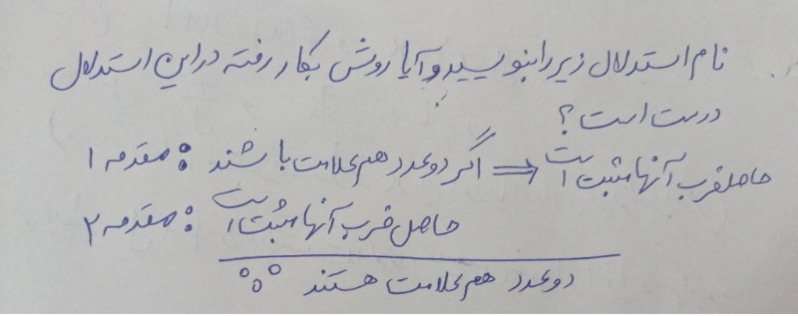 نام استدلال زیر را بنویسید و آیا روش بکار رفته در این استدلال
درست است؟
مقدمه ۱ : اگر دو عدد هم علامت باشند ⇒ حاصلضرب آنها مثبت است
مقدمه ۲ : حاصل ضرب آنها مثبت است
∴ دو عدد هم علامت هستند